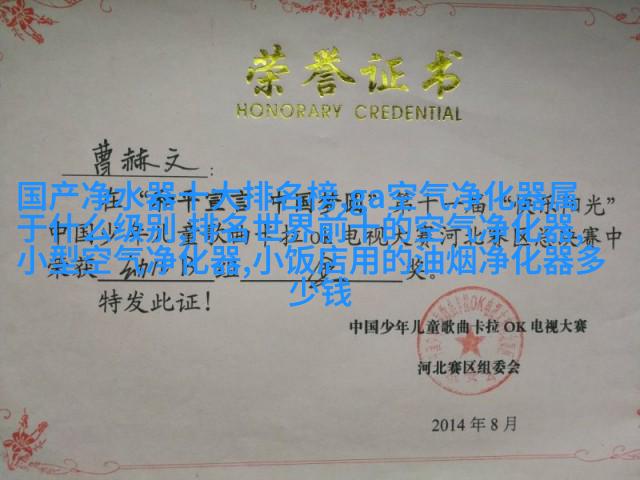 荣誉证书
HONORARY CREDENTIAL
曹赫文:
国产净水器十大排名榜,ga空气净化器属
于什么级别,排名世界前十的空气净化器,
小型空气净化器,小饭店用的油烟净化器多
少钱
第十一届“快乐阳光”
中国少年儿童歌曲卡拉OK电视大赛河北赛区总决赛中
荣获 幼儿B 组 奖。
特发此证!
中国少年儿童歌曲卡拉OK电视大赛
河北赛区组委会
2014年8月